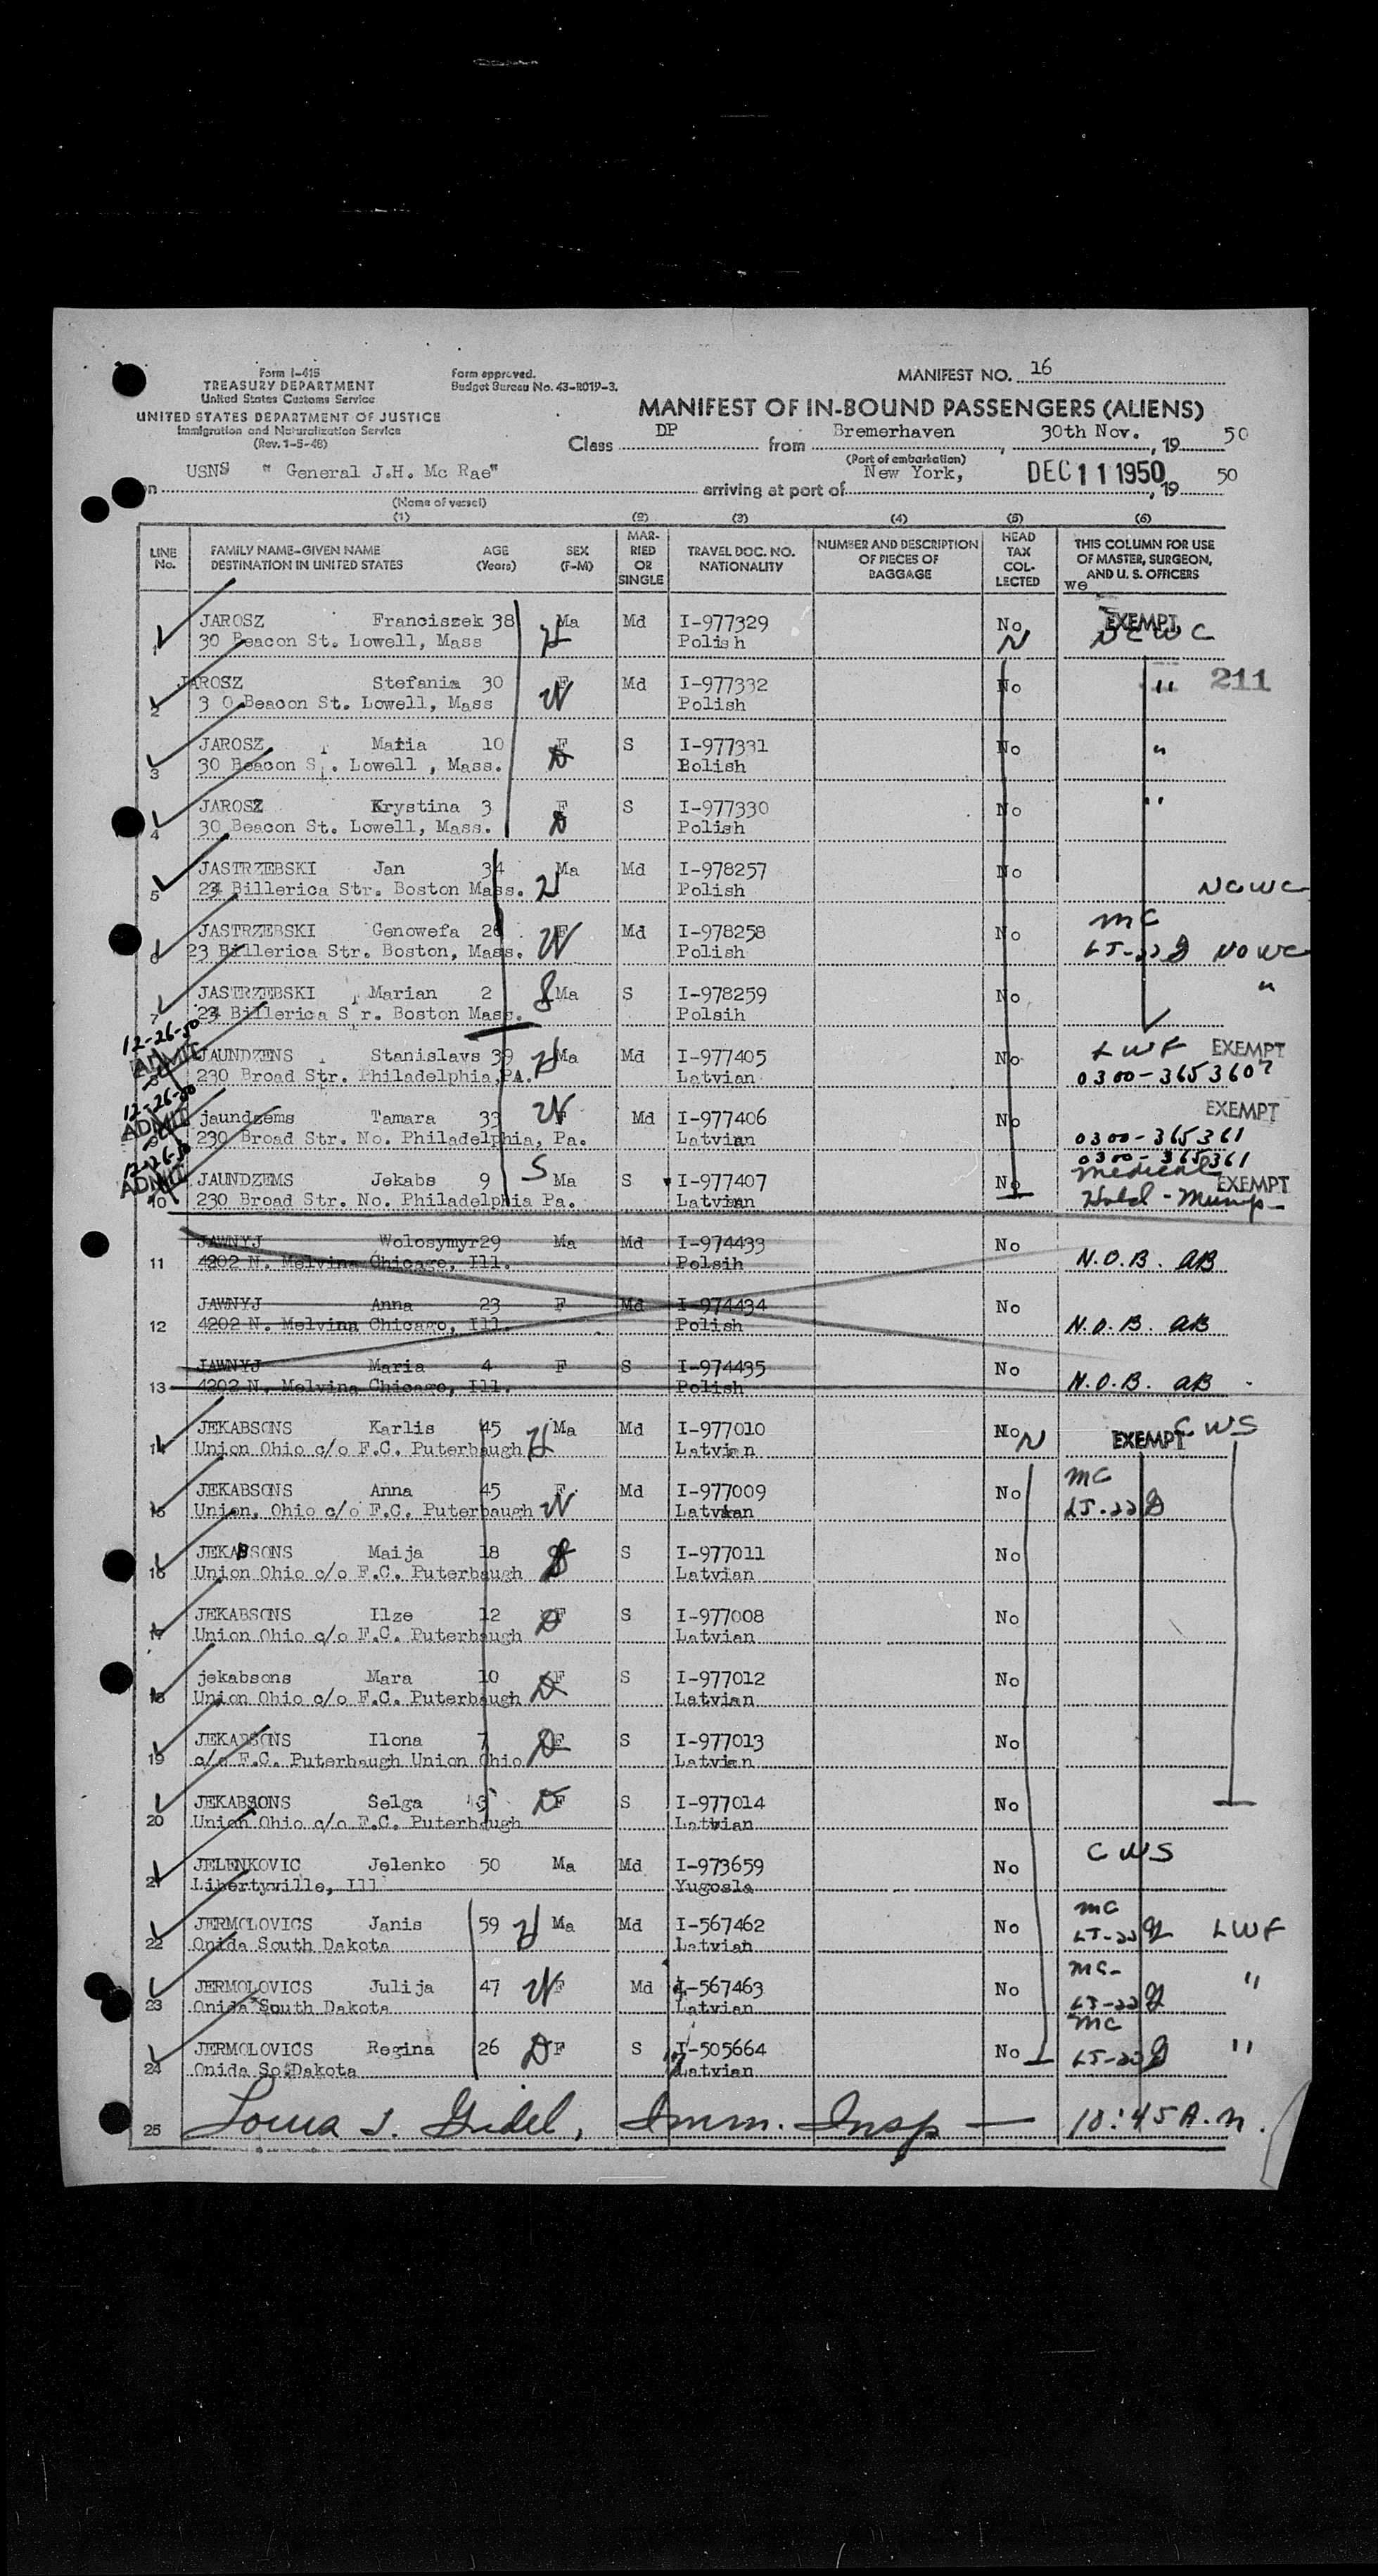 Form I-415
TREASURY DEPARTMENT
United States Customs Service
UNITED STATES DEPARTMENT OF JUSTICE
Immigration and Naturalization Service
(Rev. 1-5-48)
Form approved.
Budget Bureau No. 43-R019-3.
MANIFEST NO. 16
MANIFEST OF IN-BOUND PASSENGERS (ALIENS)
Class DP from Bremerhaven, 30th Nov., 19 50
(Port of embarkation)
USNS " General J.H. Mc Rae" arriving at port of New York, DEC 11 1950, 19 50
(Name of vessel)
(1) (2) (3) (4) (5) (6)
LINE No. FAMILY NAME-GIVEN NAME DESTINATION IN UNITED STATES AGE (Years) SEX (F-M) MARRIED OR SINGLE TRAVEL DOC. NO. NATIONALITY NUMBER AND DESCRIPTION OF PIECES OF BAGGAGE HEAD TAX COLLECTED THIS COLUMN FOR USE OF MASTER, SURGEON, AND U. S. OFFICERS
we
1 JAROSZ Franciszek 38 Ma Md I-977329 No EXEMPT
30 Beacon St. Lowell, Mass H Polish N NCWC
2 JAROSZ Stefania 30 F Md I-977332 No " 211
3 0 Beacon St. Lowell, Mass W Polish
3 JAROSZ Maria 10 F S I-977331 No "
30 Beacon S . Lowell , Mass. D Bolish
4 JAROSZ Krystina 3 F S I-977330 No "
30 Beacon St. Lowell, Mass. D Polish
5 JASTRZEBSKI Jan 34 Ma Md I-978257 No
24 Billerica Str. Boston Mass. H Polish NCWC
6 JASTRZEBSKI Genowefa 26 F Md I-978258 No MC
23 Billerica Str. Boston, Mass. W Polish LJ-22 NCWC
7 JASTRZEBSKI Marian 2 S Ma S I-978259 No "
24 Billerica S r. Boston Mass. Polsih
12-26-50
ADMIT JAUNDZENS Stanislavs 39 H Ma Md I-977405 No LWF EXEMPT
230 Broad Str. Philadelphia,PA. Latvian 0300-365360
12-26-50
ADMIT 9 jaundzems Tamara 33 W Md I-977406 No EXEMPT
230 Broad Str. No. Philadelphia, Pa. Latvian 0300-365361
12-26-50 0300-365361
ADMIT 10 JAUNDZEMS Jekabs 9 S Ma S I-977407 No Medical EXEMPT
230 Broad Str. No. Philadelphia Pa. Latvian Hold - Mump
11 JAWNYJ Wolosymyr29 Ma Md I-974433 No
4202 N. Melvina Chicago, Ill. Polsih N.O.B. AB
12 JAWNYJ Anna 23 F Md I-974434 No
4202 N. Melvina Chicago, Ill. Polish N.O.B. AB
13 JAWNYJ Maria 4 F S I-974435 No
4202 N. Melvina Chicago, Ill. Polish N.O.B. AB
14 JEKABSONS Karlis 45 Ma Md I-977010 No N EXEMPT CWS
Union Ohio c/o F.C. Puterbaugh H Latvian
15 JEKABSONS Anna 45 F Md I-977009 No MC
Union, Ohio c/o F.C. Puterbaugh W Latvian LJ-22
16 JEKABSONS Maija 18 S I-977011 No
Union Ohio c/o F.C. Puterbaugh Latvian
17 JEKABSONS Ilze 12 D F S I-977008 No
Union Ohio c/o F.C. Puterbaugh Latvian
18 jekabsons Mara 10 D F S I-977012 No
Union Ohio c/o F.C. Puterbaugh Latvian
19 JEKABSONS Ilona 7 D F S I-977013 No
c/o F.C. Puterbaugh Union Ohio Latvian
20 JEKABSONS Selga 3 D F S I-977014 No
Union Ohio c/o F.C. Puterbaugh Latvian
21 JELENKOVIC Jelenko 50 Ma Md I-973659 No CWS
Libertyville, Ill Yugosla
22 JERMOLOVICS Janis 59 H Ma Md I-567462 No MC
Onida South Dakota Latvian LJ-22 LWF
23 JERMOLOVICS Julija 47 W F Md I-567463 No MC "
Onida South Dakota Latvian LJ-22
24 JERMOLOVICS Regina 26 D F S I-505664 No MC "
Onida So.Dakota Latvian LJ-22
25 Imm. Insp — 10:45 A.M.